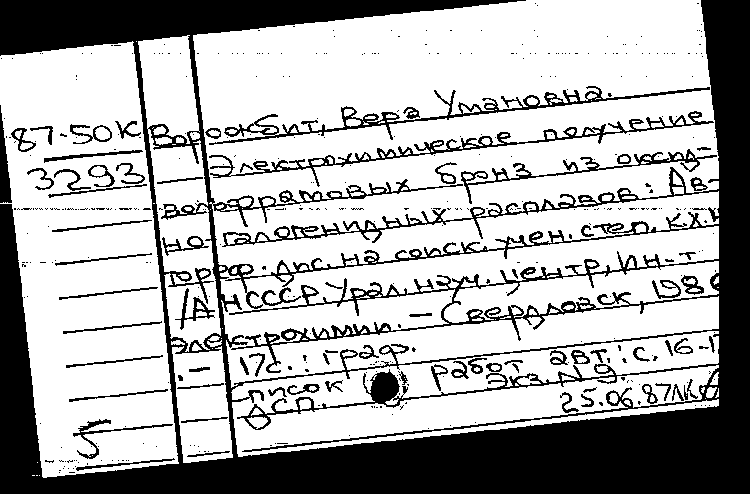 87-50К Ворокбит, Вера Умановна.
3293 Электрохимическое получение
вольфрамовых бронз из оксид-
но-галогенидных расплавов: Ав-
тореф. дис. на соиск. учен. степ. к.х.н
/АН СССР. Урал. науч. центр, Ин-т
электрохимии. – Свердловск, 198
. – 17с.: граф.
Список работ авт.: с. 16-1
ДСП. Экз. N 9.
5 25.06.87